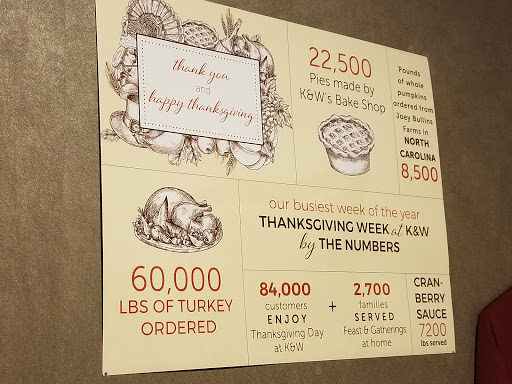 thank you
and
happy thanksgiving
22,500
Pies made by
K&W's Bake Shop
Pounds
of whole
pumpkins
ordered from
Joey Bullins
Farms in
NORTH
CAROLINA
8,500
60,000
LBS OF TURKEY
ORDERED
our busiest week of the year
THANKSGIVING WEEK at K&W
by THE NUMBERS
84,000
customers
ENJOY
Thanksgiving Day
at K&W
+
2,700
families
SERVED
Feast & Gatherings
at home
CRAN-
BERRY
SAUCE
7200
lbs served